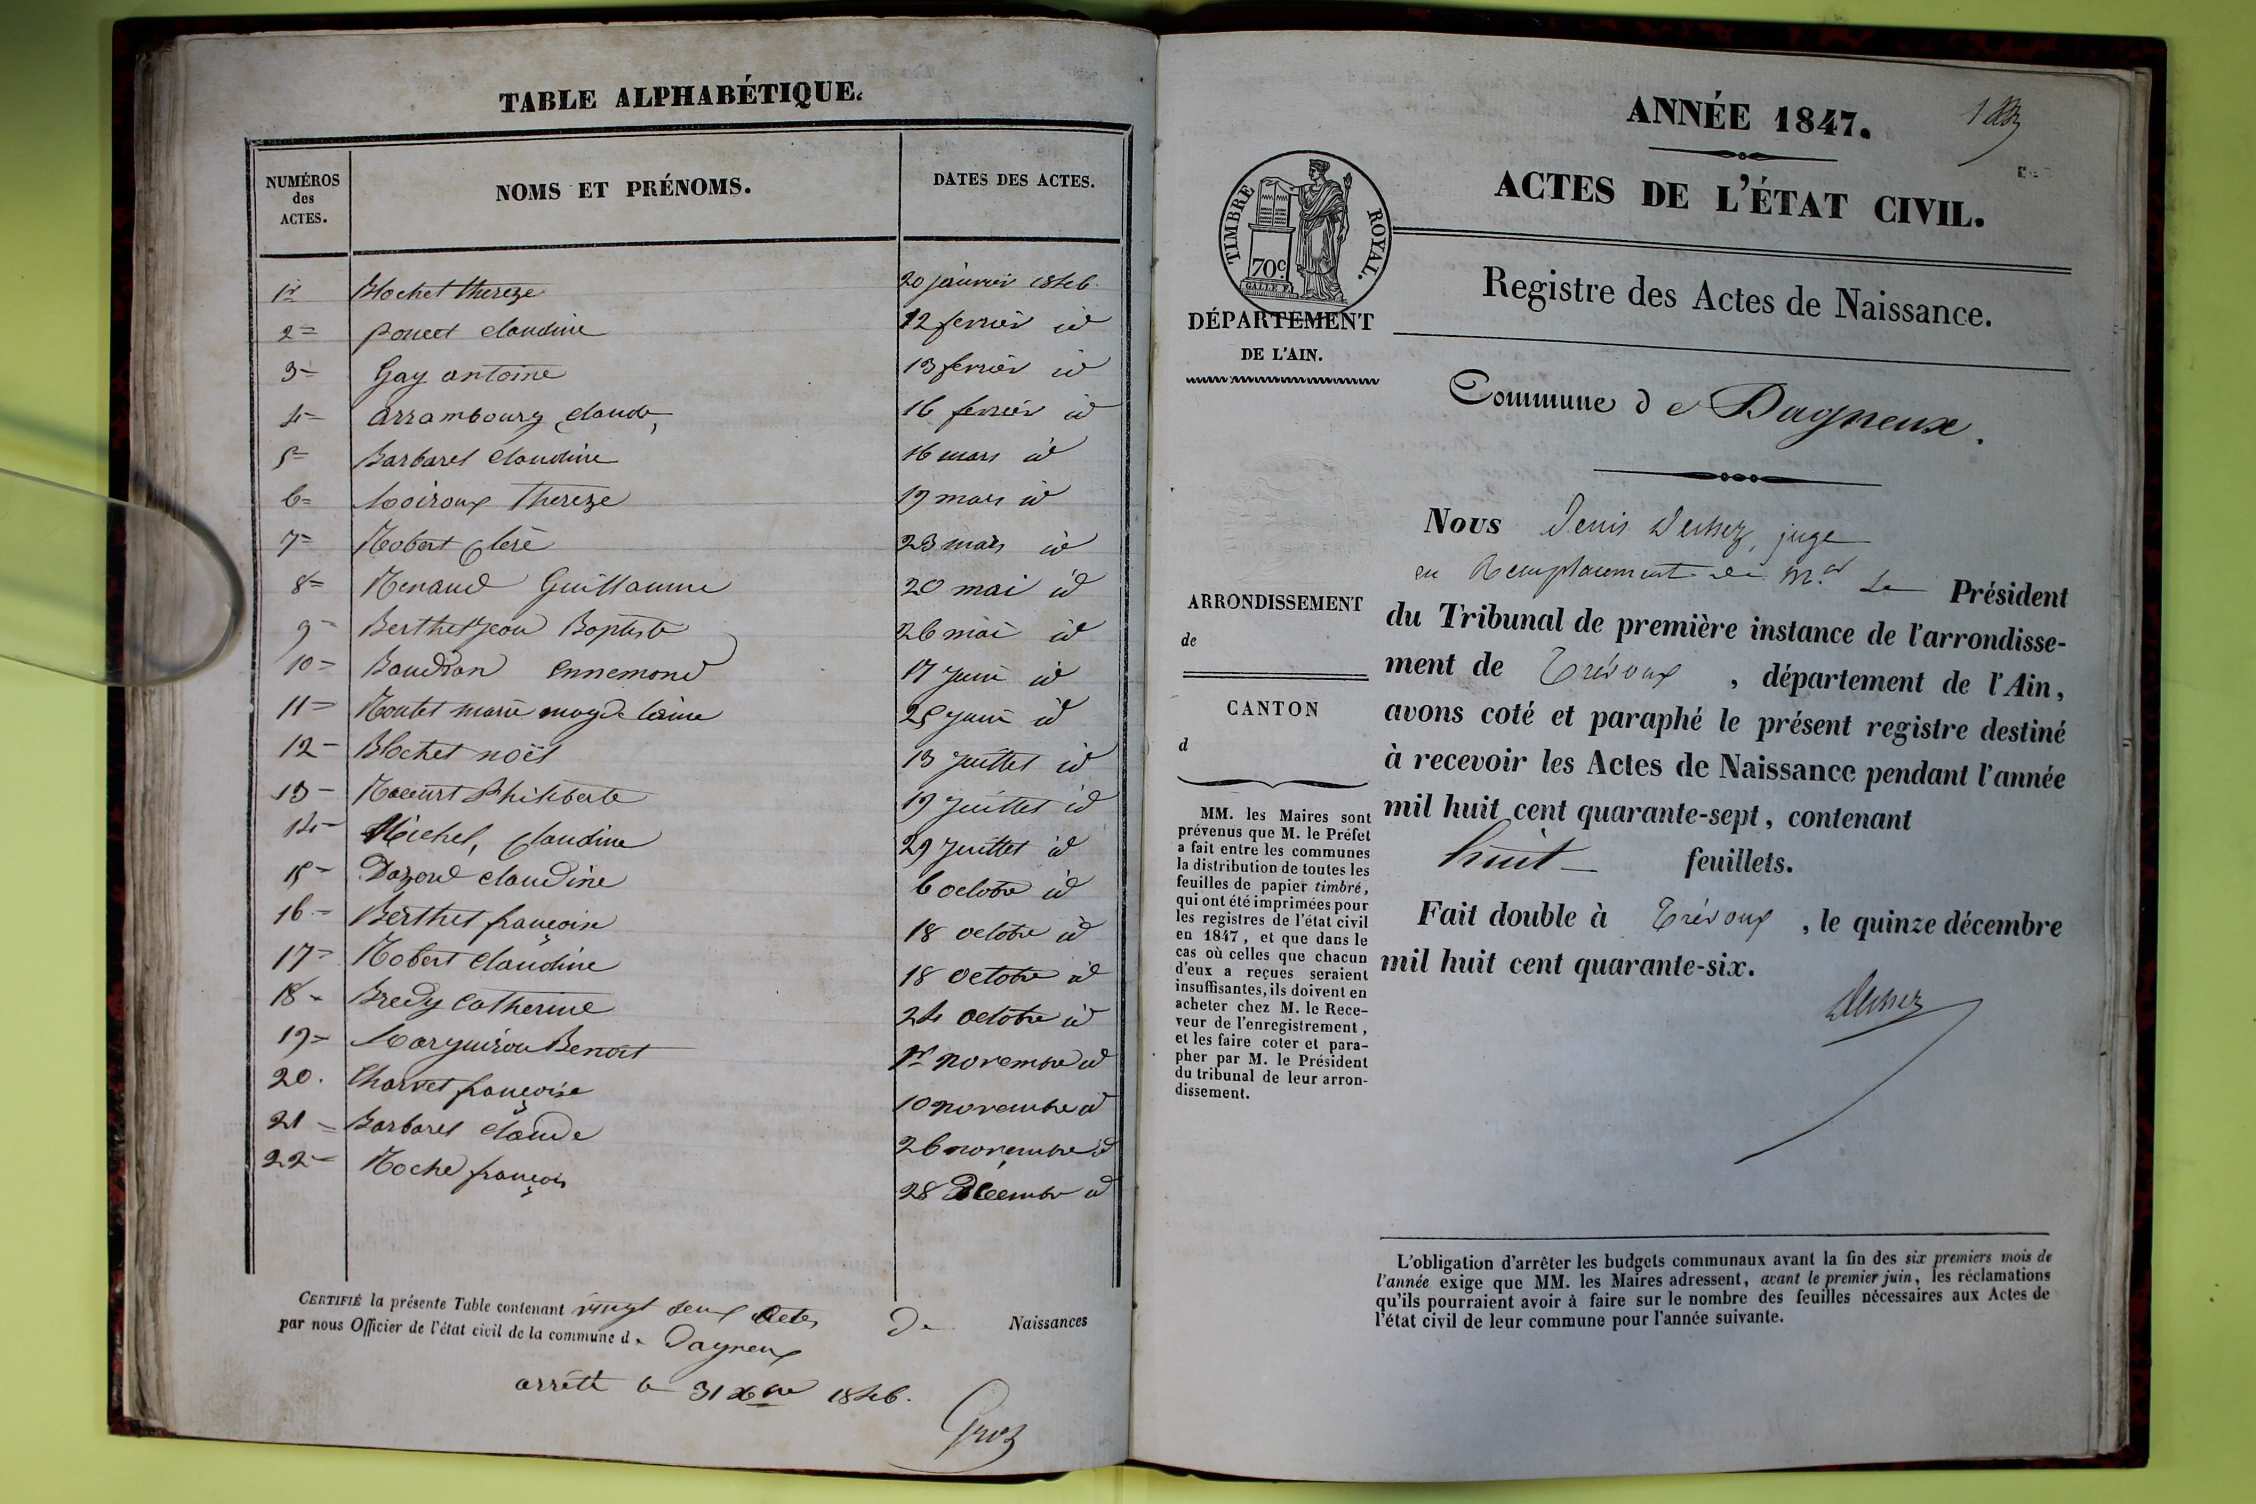 TABLE ALPHABÉTIQUE.
NUMÉROS des ACTES.
NOMS ET PRÉNOMS.
DATES DES ACTES.
1r Blochet thereze 20 janvier 1846.
2= poncet claudine 12 fevrier id
3= Gay antoine 13 fevrier id
4= arrambourg claude 16 fevrier id
5= Barbaret claudine 16 mars id
6= Moiroux thereze 19 mars id
7= Robert 23 mars id
8= Renaud Guillaume 20 mai id
9= Berthet jean Baptiste 26 mai id
10= Baudran ennemond 17 juin id
11= Routet marie magdeleine 25 juin id
12= Blochet noël 13 juillet id
13= Philiberte 19 juillet id
14= Michel, claudine 29 juillet id
15= Dazord claudine 6 octobre id
16= Berthet françoise 18 octobre id
17= Robert claudine 18 octobre id
18= Bredy catherine 24 octobre id
19= Benoît 1er novembre id
20. Charvet françoise 10 novembre id
21= Barbaret claude 26 novembre id
22= Roche françois 28 Décembre id
CERTIFIÉ la présente Table contenant vingt deux actes De Naissances
par nous Officier de l'état civil de la commune de Dagneux
arrêté le 31 Xbre 1846.
Groz
ANNÉE 1847.
ACTES DE L'ÉTAT CIVIL.
TIMBRE ROYAL.
70c
GALLE F.
Registre des Actes de Naissance.
DÉPARTEMENT
DE L'AIN.
Commune de Dagneux.
ARRONDISSEMENT
de
CANTON
d
MM. les Maires sont
prévenus que M. le Préfet
a fait entre les communes
la distribution de toutes les
feuilles de papier timbré,
qui ont été imprimées pour
les registres de l'état civil
en 1847, et que dans le
cas où celles que chacun
d'eux a reçues seraient
insuffisantes, ils doivent en
acheter chez M. le Rece-
veur de l'enregistrement,
et les faire coter et para-
pher par M. le Président
du tribunal de leur arron-
dissement.
Nous Denis juge
en Remplacement de Mr Le Président
du Tribunal de première instance de l'arrondisse-
ment de Trévoux, département de l'Ain,
avons coté et paraphé le présent registre destiné
à recevoir les Actes de Naissance pendant l'année
mil huit cent quarante-sept, contenant
huit feuillets.
Fait double à Trévoux, le quinze décembre
mil huit cent quarante-six.
L'obligation d'arrêter les budgets communaux avant la fin des six premiers mois de
l'année exige que MM. les Maires adressent, avant le premier juin, les réclamations
qu'ils pourraient avoir à faire sur le nombre des feuilles nécessaires aux Actes de
l'état civil de leur commune pour l'année suivante.